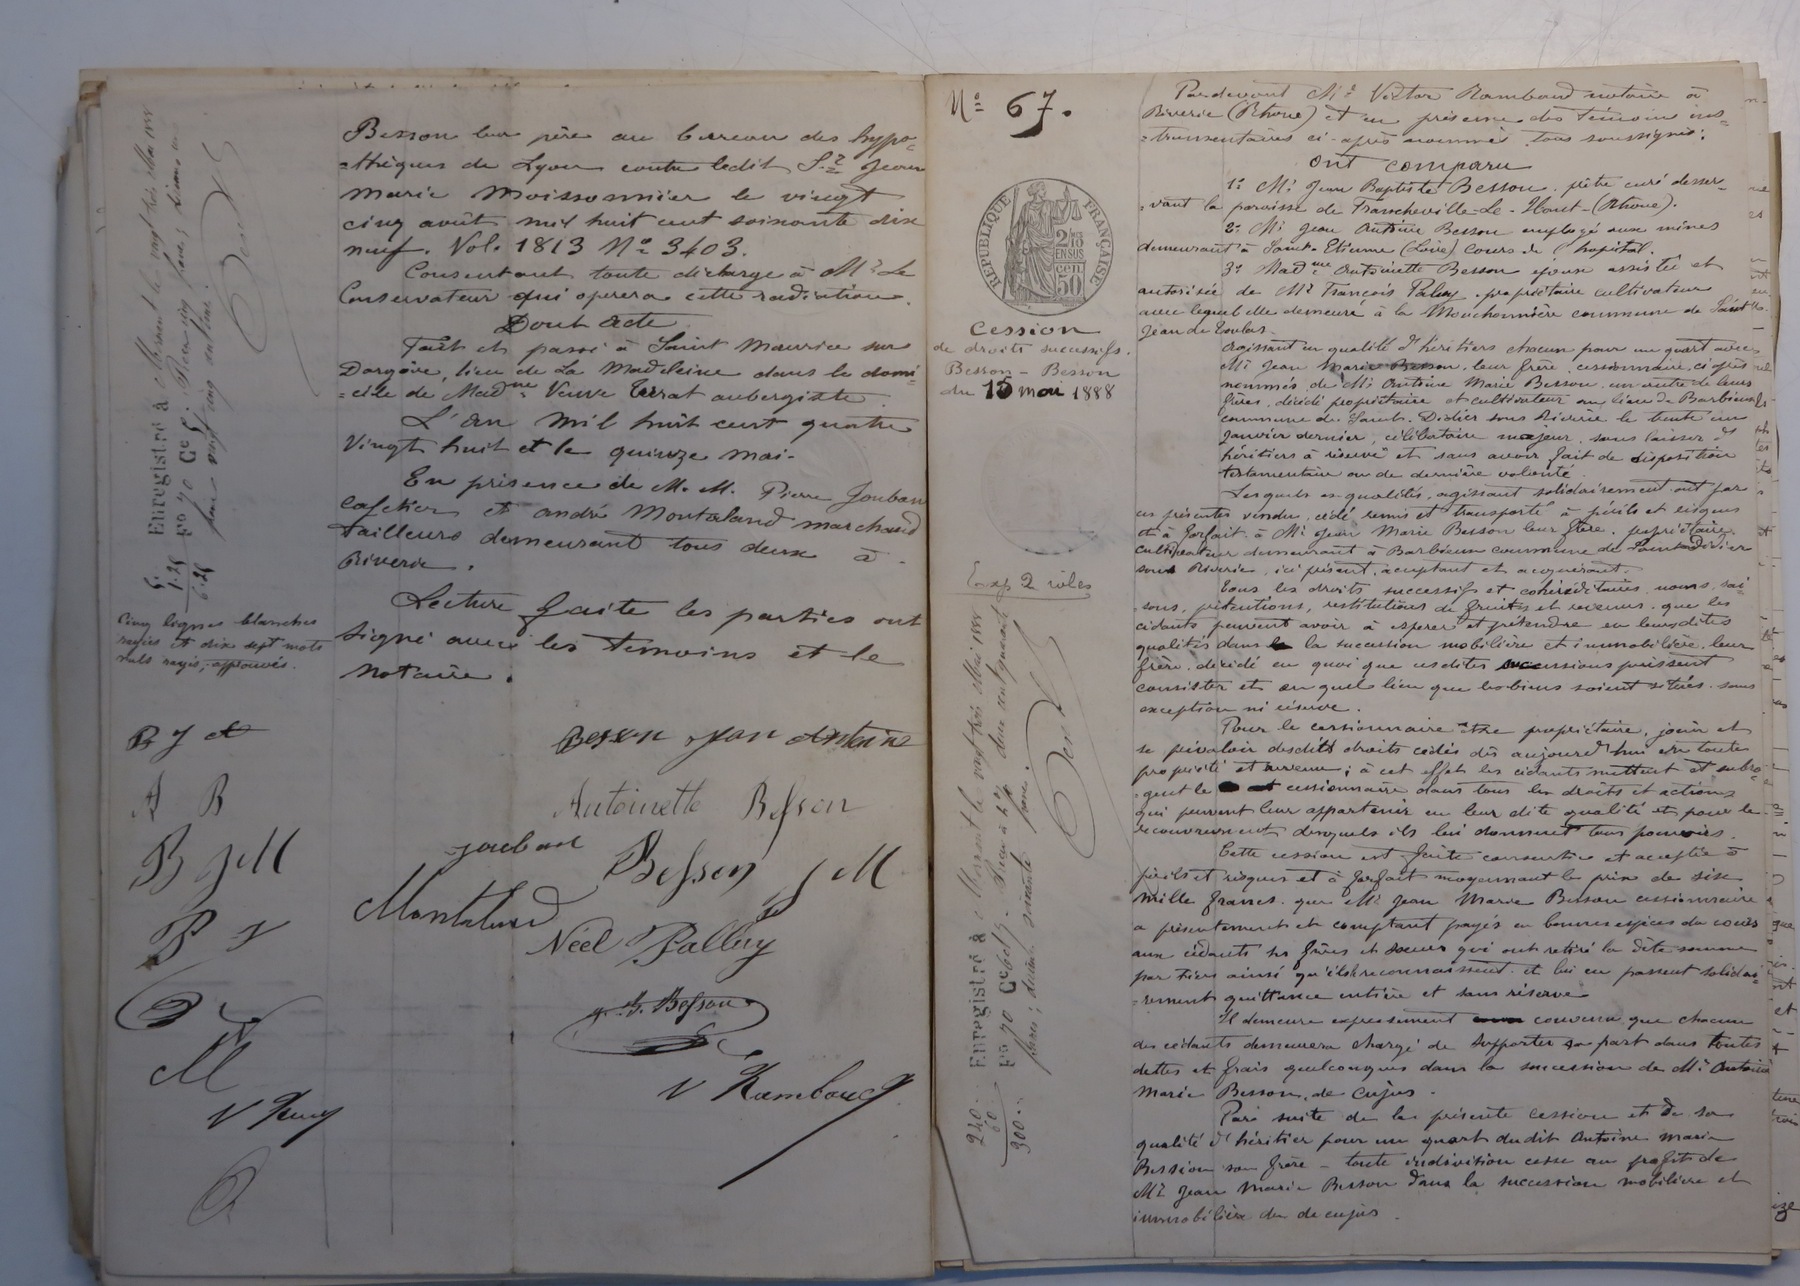 Besson leur père au bureau des hypo=
=thèques de Lyon contre ledit S.r Jean
Marie Moissonnier le vingt
cinq août mil huit cent soixante dix
neuf. Vol. 1813 N° 3403.
Consentant toute décharge à Mr Le
Conservateur qui operera cette radiation.
Dont Acte
Fait et passé à Saint Maurice sur
Dargoire, lieu de La Madeleine dans le domi=
=cile de Madme Veuve Terrat aubergiste.
L'an mil huit cent quatre
Vingt huit et le quinze mai.
En présence de M. M. Pierre Jouban
cafetier et andré Montaland marchand
tailleurs demeurant tous deux à
Riverie.
Lecture faite les parties ont
signé avec les témoins et le
notaire.
Enregistré à Mornant le vingt trois Mai 1888
Fo 70 Ce 5.
5.
1.25
6.25
Cinq lignes blanches
rayées et dix sept mots
nuls rayés, approuvés.
B J A
A B
B J M
B
M
Besson Jean Antoine
Antoinette Besson
Jouban
Besson J M
Montaland
Néel Palluy
J. B. Besson
V Rambaud
N° 67.
RÉPUBLIQUE FRANÇAISE
2/10 EN SUS
50 cen
Cession
de droits successifs.
Besson - Besson
du 15 mai 1888
Exp 2 rôles
Enregistré à Mornant le vingt trois Mai 1888
Fo 70 Ce 6 et 7.
240.
60
300.
Pardevant Me Victor Rambaud notaire à
Riverie (Rhône) et en présence des témoins ins=
=trumentaires ci-après nommés tous soussignés:
Ont comparu
1° Mr Jean Baptiste Besson, prêtre curé desser=
=vant la paroisse de Francheville-Le-Haut-(Rhône).
2° Mr Jean Antoine Besson employé aux mines
demeurant à Saint-Etienne (Loire) Cours de l'hopital.
3° Madme Antoinette Besson épouse assistée et
autorisée de Mr François Paluy, propriétaire cultivateur
avec lequel elle demeure à la Mouchonnière commune de Saint
Jean de Toulas.
Agissant en qualité d'héritiers chacun pour un quart avec
Mr Jean Marie Besson, leur frère, cessionnaire, ci après
nommés de Mr Antoine Marie Besson, un autre de leurs
frères, décédé propriétaire et cultivateur au lieu de Barbieux
commune de Saint Didier sous Riverie le trente un
Janvier dernier, célibataire majeur, sans laisser d'
héritiers à réserve et sans avoir fait de disposition
testamentaire ou de dernière volonté
Lesquels es-qualités, agissant solidairement ont par
ces présentes vendu, cédé remis et transporté à périls et risques
et à forfait, à Mr Jean Marie Besson leur frère, propriétaire
cultivateur demeurant à Barbieux commune de Saint Didier
sous Riverie, ici présent, acceptant et acquérant.
Tous les droits successifs et cohéréditaires, noms, rai=
=sons, prétentions, restitutions de fruits et revenus que les
cédants peuvent avoir à espérer et prétendre en leursdites
qualités dans la succession mobilière et immobilière, leur
frère, décédé en quoi que cesdites successions puissent
consister et en quel lieu que les biens soient situés, sans
exception ni réserve.
Pour le cessionnaire être propriétaire, jouir et
se prévaloir desdits droits cédés dès aujourd'hui en toute
propriété et revenu; à cet effet les cédants mettent et subro=
=gent le cessionnaire dans tous les droits et actions
qui peuvent leur appartenir en leur dite qualité et pour le
recouvrement desquels ils lui donnent tous pouvoirs.
Cette cession est faite consentie et acceptée à
périls et risques et à forfait moyennant le prix de six
mille francs. que Mr Jean Marie Besson cessionnaire
a présentement et comptant payés en bonnes espèces du cours
aux cédants ses frères et soeur qui ont retiré la dite somme
par tiers ainsi qu'ils le reconnaissent et lui en passent solidai=
=rement quittance entière et sans réserve
Il demeure expressément convenu que chacun
des cédants demeurera chargé de supporter sa part dans toutes
dettes et frais quelconques dans la succession de Mr Antoine
Marie Besson, de cujus.
Par suite de la présente cession et de sa
qualité d'héritier pour un quart dudit Antoine Marie
Besson son frère - toute indivision cesse au profit de
Mr Jean Marie Besson dans la succession mobilière et
immobilière du de cujus.